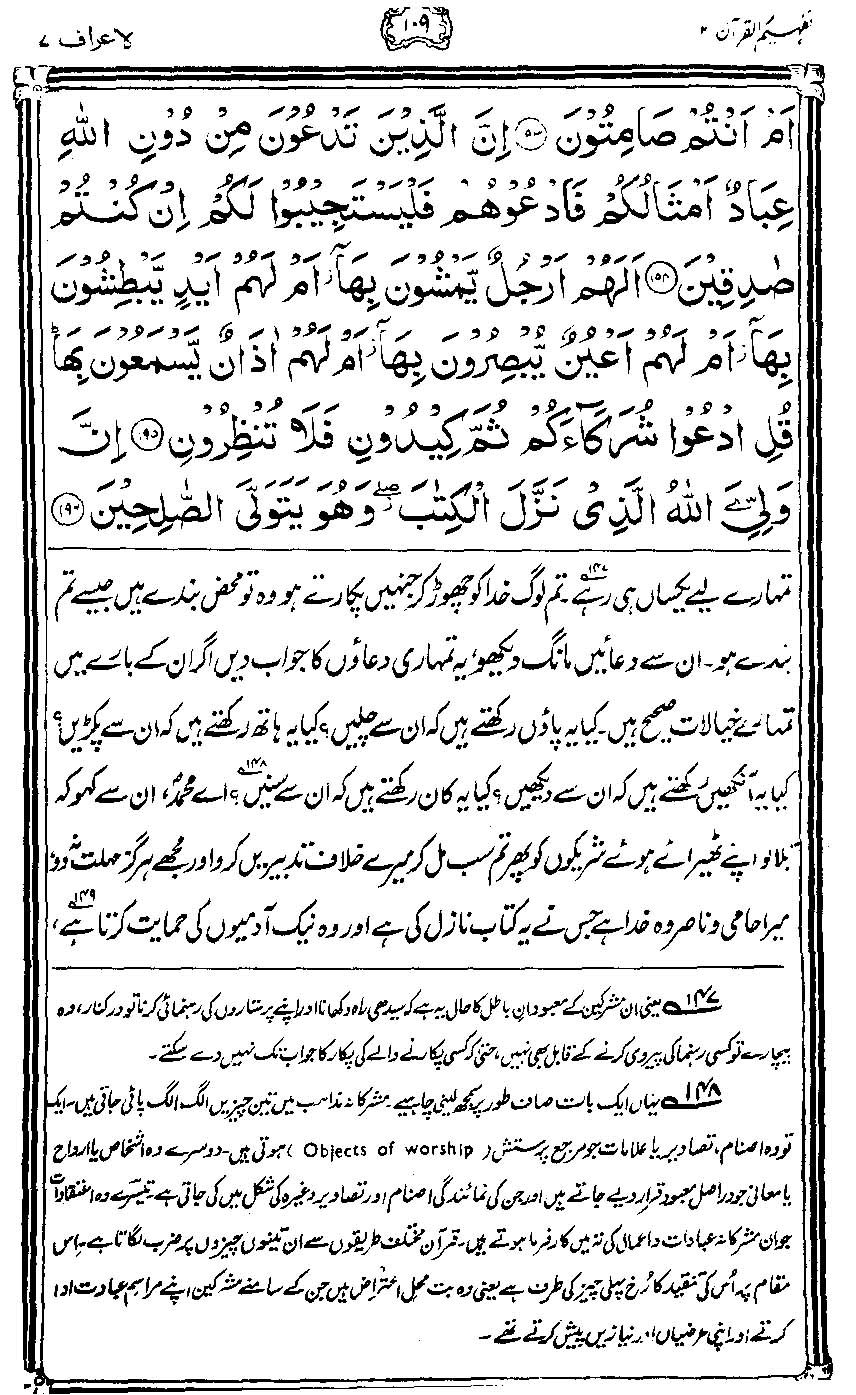 تفہیم القرآن ۲ ۱۰۹ الاعراف ۷
اَمْ اَنْتُمْ صَامِتُوْنَ ﴿۱۹۳﴾ اِنَّ الَّذِيْنَ تَدْعُوْنَ مِنْ دُوْنِ اللّٰهِ
عِبَادٌ اَمْثَالُكُمْ فَادْعُوْهُمْ فَلْيَسْتَجِيْبُوْا لَكُمْ اِنْ كُنْتُمْ
صٰدِقِيْنَ ﴿۱۹۴﴾ اَلَهُمْ اَرْجُلٌ يَّمْشُوْنَ بِهَاۤ ۫ اَمْ لَهُمْ اَيْدٍ يَّبْطِشُوْنَ
بِهَاۤ ۫ اَمْ لَهُمْ اَعْيُنٌ يُّبْصِرُوْنَ بِهَاۤ ۫ اَمْ لَهُمْ اٰذَانٌ يَّسْمَعُوْنَ بِهَا ؕ
قُلِ ادْعُوْا شُرَكَآءَكُمْ ثُمَّ كِيْدُوْنِ فَلَا تُنْظِرُوْنِ ﴿۱۹۵﴾ اِنَّ
وَلِيِّ َۧ اللّٰهُ الَّذِيْ نَزَّلَ الْكِتٰبَ ۖ وَهُوَ يَتَوَلَّى الصّٰلِحِيْنَ ﴿۱۹۶﴾
تمہارے لیے یکساں ہی رہے۱۴۷۔ تم لوگ خدا کو چھوڑ کر جنہیں پکارتے ہو وہ تو محض بندے ہیں جیسے تم
بندے ہو۔ ان سے دعائیں مانگ دیکھو، یہ تمہاری دعاؤں کا جواب دیں اگر ان کے بارے میں
تمہارے خیالات صحیح ہیں۔ کیا یہ پاؤں رکھتے ہیں کہ ان سے چلیں؟ کیا یہ ہاتھ رکھتے ہیں کہ ان سے پکڑیں؟
کیا یہ آنکھیں رکھتے ہیں کہ ان سے دیکھیں؟ کیا یہ کان رکھتے ہیں کہ ان سے سنیں۱۴۸؟ اے محمدؐ، ان سے کہو کہ
بلا لو اپنے ٹھیرائے ہوئے شریکوں کو پھر تم سب مل کر میرے خلاف تدبیریں کرو اور مجھے ہرگز مہلت نہ دو،
میرا حامی و ناصر وہ خدا ہے جس نے یہ کتاب نازل کی ہے اور وہ نیک آدمیوں کی حمایت کرتا ہے۱۴۹،
۱۴۷ یعنی ان مشرکین کے معبودانِ باطل کا حال یہ ہے کہ سیدھی راہ دکھانا اور اپنے پرستاروں کی رہنمائی کرنا تو درکنار، وہ
بیچارے تو کسی رہنما کی پیروی کرنے کے قابل بھی نہیں، حتیٰ کہ کسی پکارنے والے کی پکار کا جواب تک نہیں دے سکتے۔
۱۴۸ یہاں ایک بات صاف طور پر سمجھ لینی چاہیے۔ مشرکانہ مذاہب میں تین چیزیں الگ الگ پائی جاتی ہیں۔ ایک
تو وہ اصنام، تصاویر یا علامات جو مرجع پرستش (Objects of worship) ہوتی ہیں۔ دوسرے وہ اشخاص یا ارواح
یا معانی جو دراصل معبود قرار دیے جاتے ہیں اور جن کی نمائندگی اصنام اور تصاویر وغیرہ کی شکل میں کی جاتی ہے۔ تیسرے وہ اعتقادات
جو ان مشرکانہ عبادات و اعمال کی تہ میں کارفرما ہوتے ہیں۔ قرآن مختلف طریقوں سے ان تینوں چیزوں پر ضرب لگاتا ہے۔ اِس
مقام پر اُس کی تنقید کا رُخ پہلی چیز کی طرف ہے یعنی وہ بت محلِ اعتراض ہیں جن کے سامنے مشرکین اپنے مراسمِ عبادت ادا
کرتے اور اپنی عرضیاں اور نیازیں پیش کرتے تھے۔